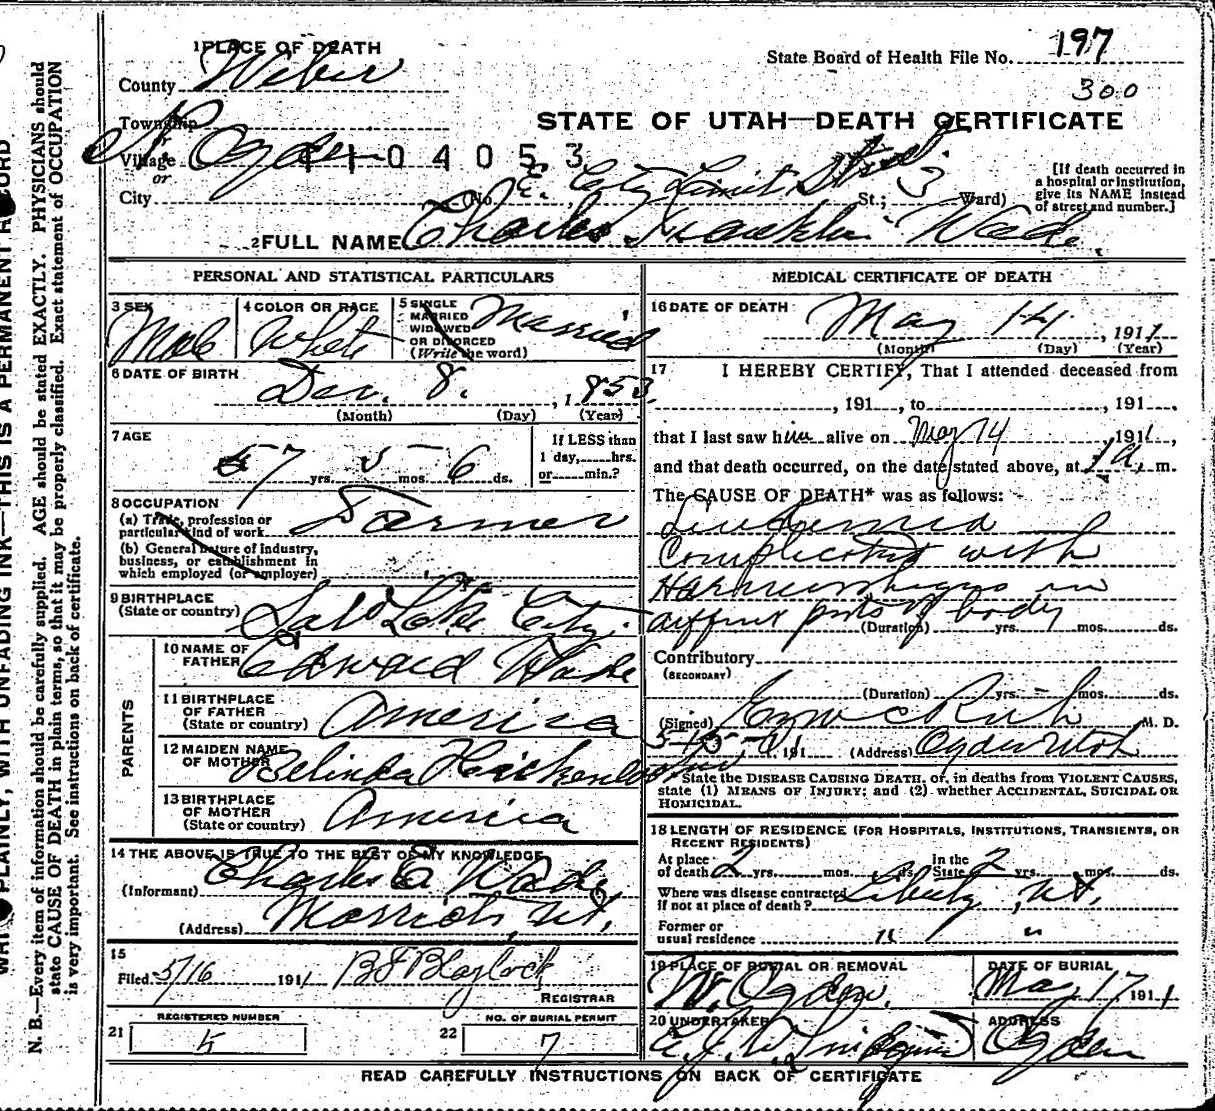 N. B.—Every item of information should be carefully supplied. AGE should be stated EXACTLY. PHYSICIANS should
state CAUSE OF DEATH in plain terms, so that it may be properly classified. Exact statement of OCCUPATION
is very important. See instructions on back of certificate.
PLAINLY, WITH UNFADING INK—THIS IS A PERMANENT
1 PLACE OF DEATH
County Weber
State Board of Health File No. 197
300
Township
STATE OF UTAH—DEATH CERTIFICATE
or
Village N. Ogden
4104053
or
City (No. E. City Limit St.; 3 Ward)
[If death occurred in
a hospital or institution,
give its NAME instead
of street and number.]
2 FULL NAME Charles Franklin Wade
PERSONAL AND STATISTICAL PARTICULARS
3 SEX Male
4 COLOR OR RACE White
5 SINGLE
MARRIED
WIDOWED
OR DIVORCED
(Write the word) Married
6 DATE OF BIRTH
Dec. 8, 1853
(Month) (Day) (Year)
7 AGE
57 yrs. 5 mos. 6 ds.
If LESS than
1 day, hrs.
or min.?
8 OCCUPATION
(a) Trade, profession or
particular kind of work Farmer
(b) General nature of industry,
business, or establishment in
which employed (or employer)
9 BIRTHPLACE
(State or country) Salt Lake City
PARENTS
10 NAME OF
FATHER Edward Wade
11 BIRTHPLACE
OF FATHER
(State or country) America
12 MAIDEN NAME
OF MOTHER Belinda Hickenlooper
13 BIRTHPLACE
OF MOTHER
(State or country) America
14 THE ABOVE IS TRUE TO THE BEST OF MY KNOWLEDGE
(Informant) Charles E. Wade
(Address) Marriott, Ut.
15
Filed 5/16 1911 B F Blaylock
REGISTRAR
REGISTERED NUMBER
21 5
NO. OF BURIAL PERMIT
22 7
MEDICAL CERTIFICATE OF DEATH
16 DATE OF DEATH
May 14, 1911
(Month) (Day) (Year)
17 I HEREBY CERTIFY, That I attended deceased from
, 191 , to , 191 ,
that I last saw him alive on May 14, 1911,
and that death occurred, on the date stated above, at 1 A. m.
The CAUSE OF DEATH* was as follows:
Leukemia
Complicated with
Hemorrhages in
different parts of body
(Duration) yrs. mos. ds.
Contributory
(SECONDARY)
(Duration) yrs. mos. ds.
(Signed) M. D.
5-15- 191 (Address) Ogden Utah
State the DISEASE CAUSING DEATH, or, in deaths from VIOLENT CAUSES,
state (1) MEANS OF INJURY; and (2) whether ACCIDENTAL, SUICIDAL OR
HOMICIDAL.
18 LENGTH OF RESIDENCE (FOR HOSPITALS, INSTITUTIONS, TRANSIENTS, OR
RECENT RESIDENTS)
At place
of death 2 yrs. mos. ds.
In the
State 2 yrs. mos. ds.
Where was disease contracted
if not at place of death? Liberty, Ut.
Former or
usual residence " "
19 PLACE OF BURIAL OR REMOVAL
W. Ogden.
DATE OF BURIAL
May 17 1911
20 UNDERTAKER
ADDRESS
Ogden
READ CAREFULLY INSTRUCTIONS ON BACK OF CERTIFICATE